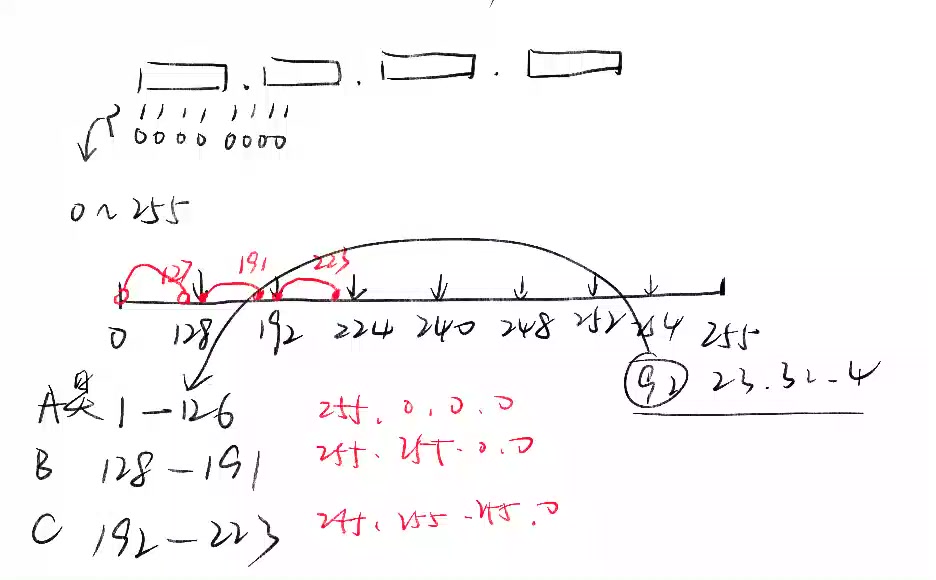 . . .
1111 1111
0000 0000
0~255
127 191 223
0 128 192 224 240 248 252 254 255
92 23.32.4
A类 1-126 255.0.0.0
B 128-191 255.255.0.0
C 192-223 255.255.255.0